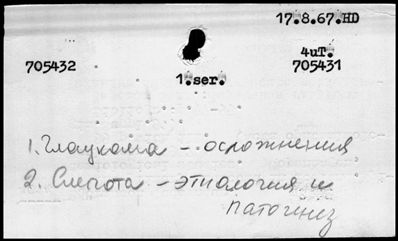 17.8.67.HD
4uT.
705432
705431
1.ser.
1. Глаукома – осложнения
2. Слепота – этиология и
патогенез